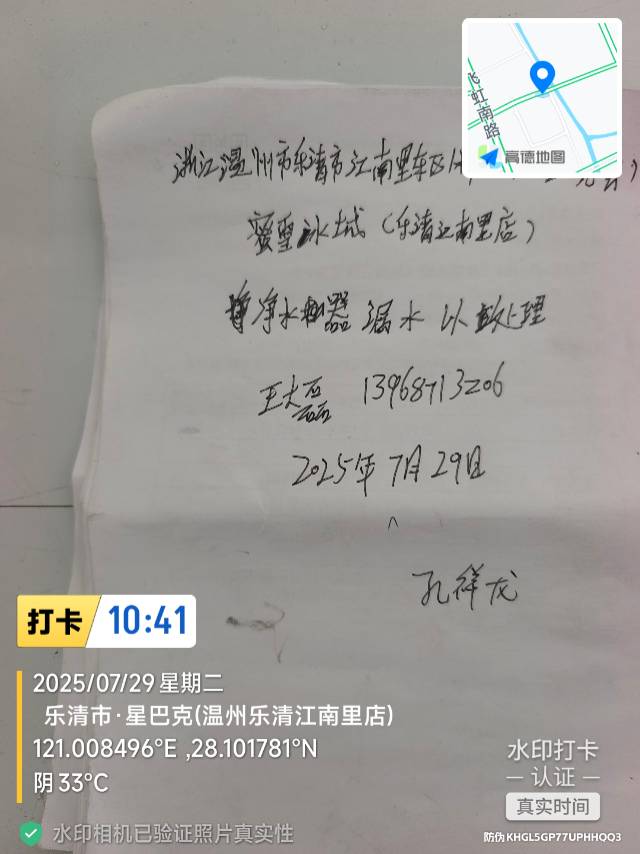 浙江温州市乐清市江南里车区
蜜雪冰城(乐清江南里店)
净水器漏水 以处理
王大磊 13968713206
2025年7月29日
孔祥龙
飞虹南路
高德地图
打卡 10:41
2025/07/29 星期二
乐清市·星巴克(温州乐清江南里店)
121.008496°E ,28.101781°N
阴 33°C
水印相机已验证照片真实性
水印打卡
认证
真实时间
防伪 KHGL5GP77UPHHQO3